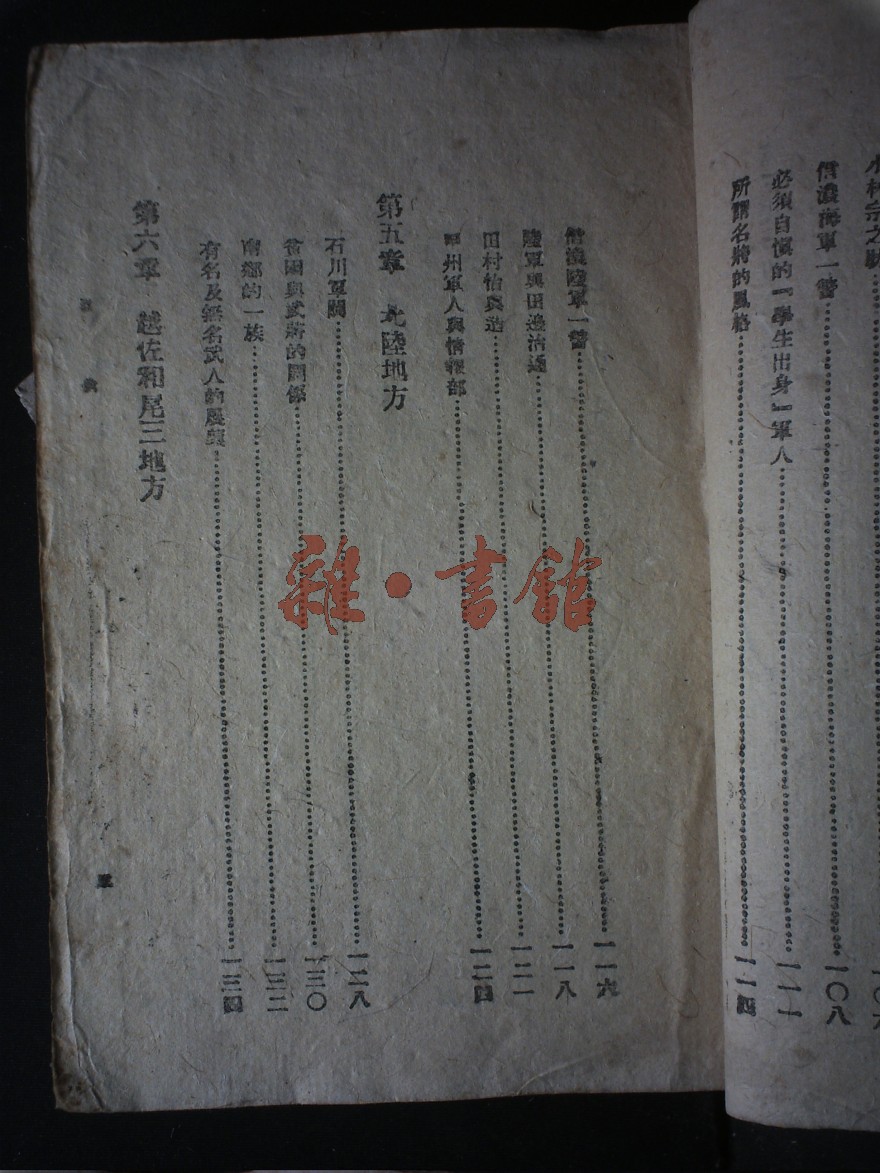 信濃海軍一瞥……一〇八
必須自愼的『學生出身』軍人……一一一
所謂名將的風格……一一四
信濃陸軍一瞥……一一六
陸軍與田邊治通……一一八
田村怡與造……一二一
州軍人與情報部……一二四
第五章 北陸地方
石川軍閥……一二八
貧困與武將的關係……一三〇
南鄉的一族……一三二
有名及無名武人的展望……一三四
第六章 越佐和尾三地方
雜·書館